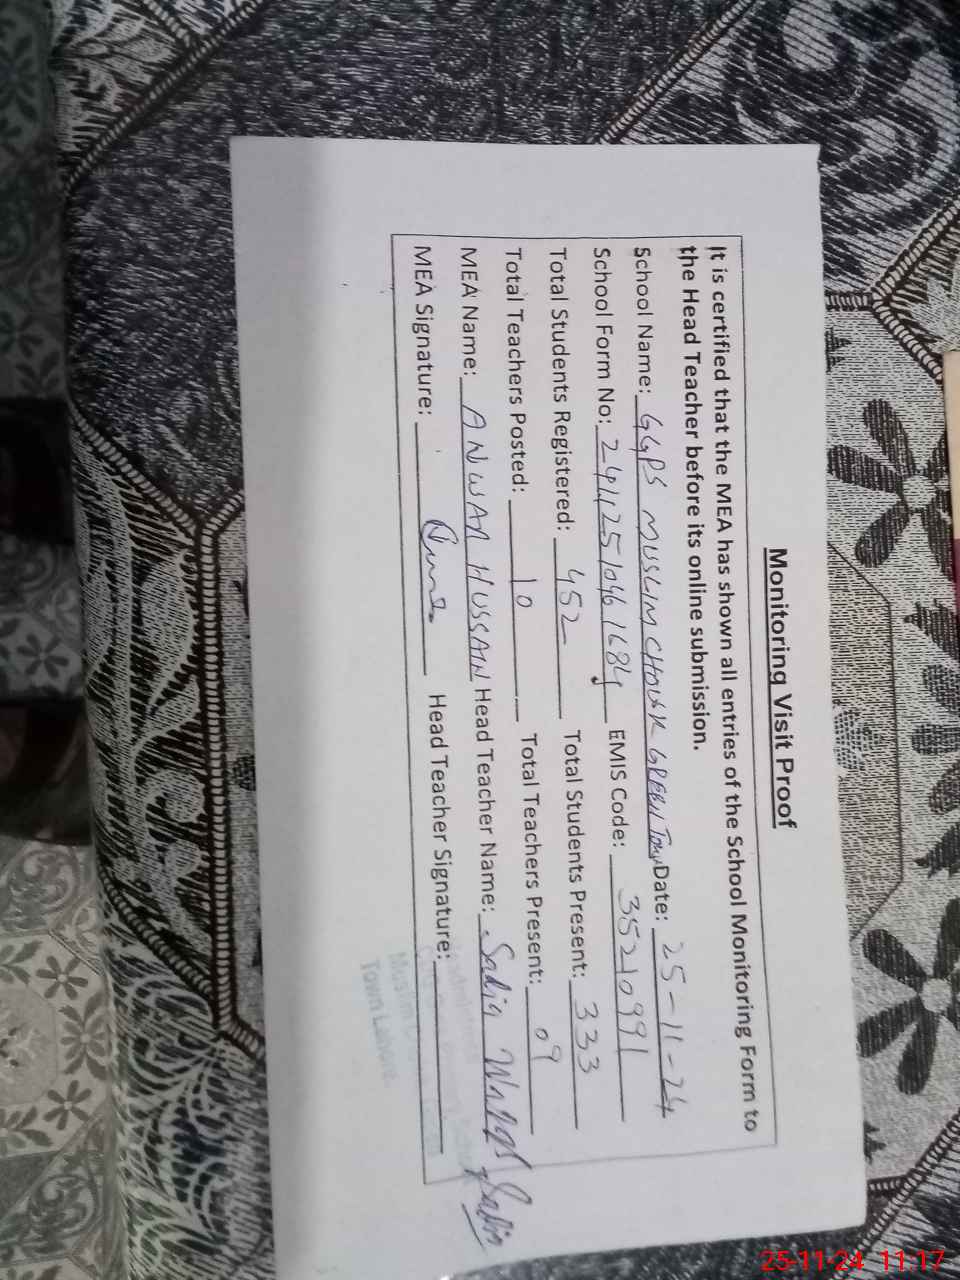 Monitoring Visit Proof
It is certified that the MEA has shown all entries of the School Monitoring Form to
the Head Teacher before its online submission.
School Name: GGPS MUSLIM CHOWK GREEN TOWN Date: 25-11-24
School Form No: 24112510461684 EMIS Code: 35210991
Total Students Registered: 452 Total Students Present: 333
Total Teachers Posted: 10 Total Teachers Present: 09
MEA Name: ANWAR HUSSAIN Head Teacher Name: Sadia
MEA Signature: Head Teacher Signature:
Muslim
Town Lahore
25-11-24 11:17